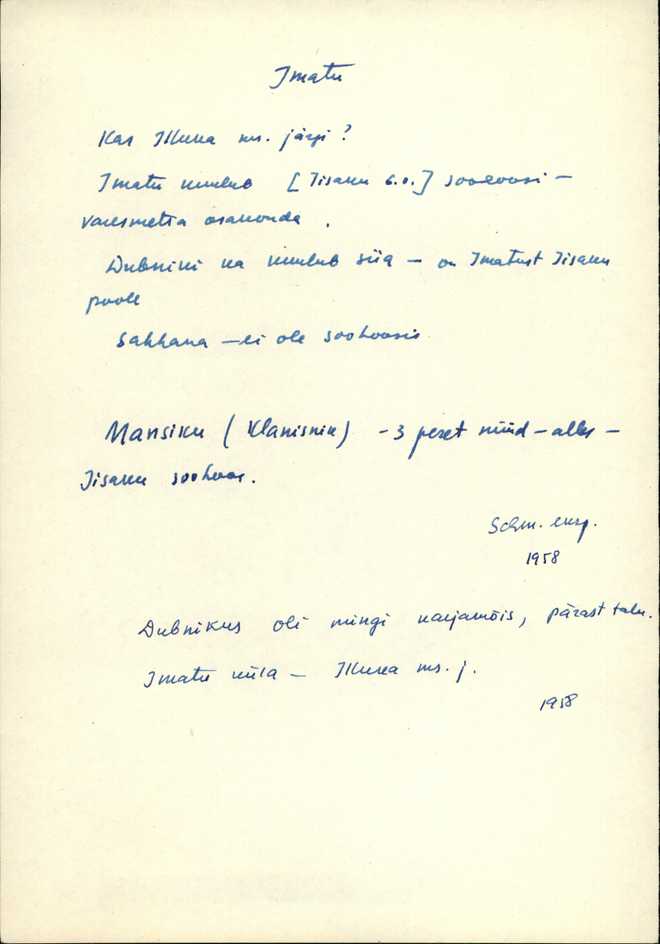 Imatu
Kas Illuka ms. järgi?
Imatu kuulub [Iisaku 6.0.] sovhoosi –
varesmetsa osakonda.
Dubniki ka kuulub siia – on Imatust Iisaku
poole
Sahhana – ei ole sovhoosis
Mansiku (Klanisniku) – 3 peret nüüd – alles –
Iisaku sovhoos.
Schm. eksp.
1958
Dubnikus oli mingi karjamõis, pärast talu.
Imatu küla – Illuka ms. j.
1958